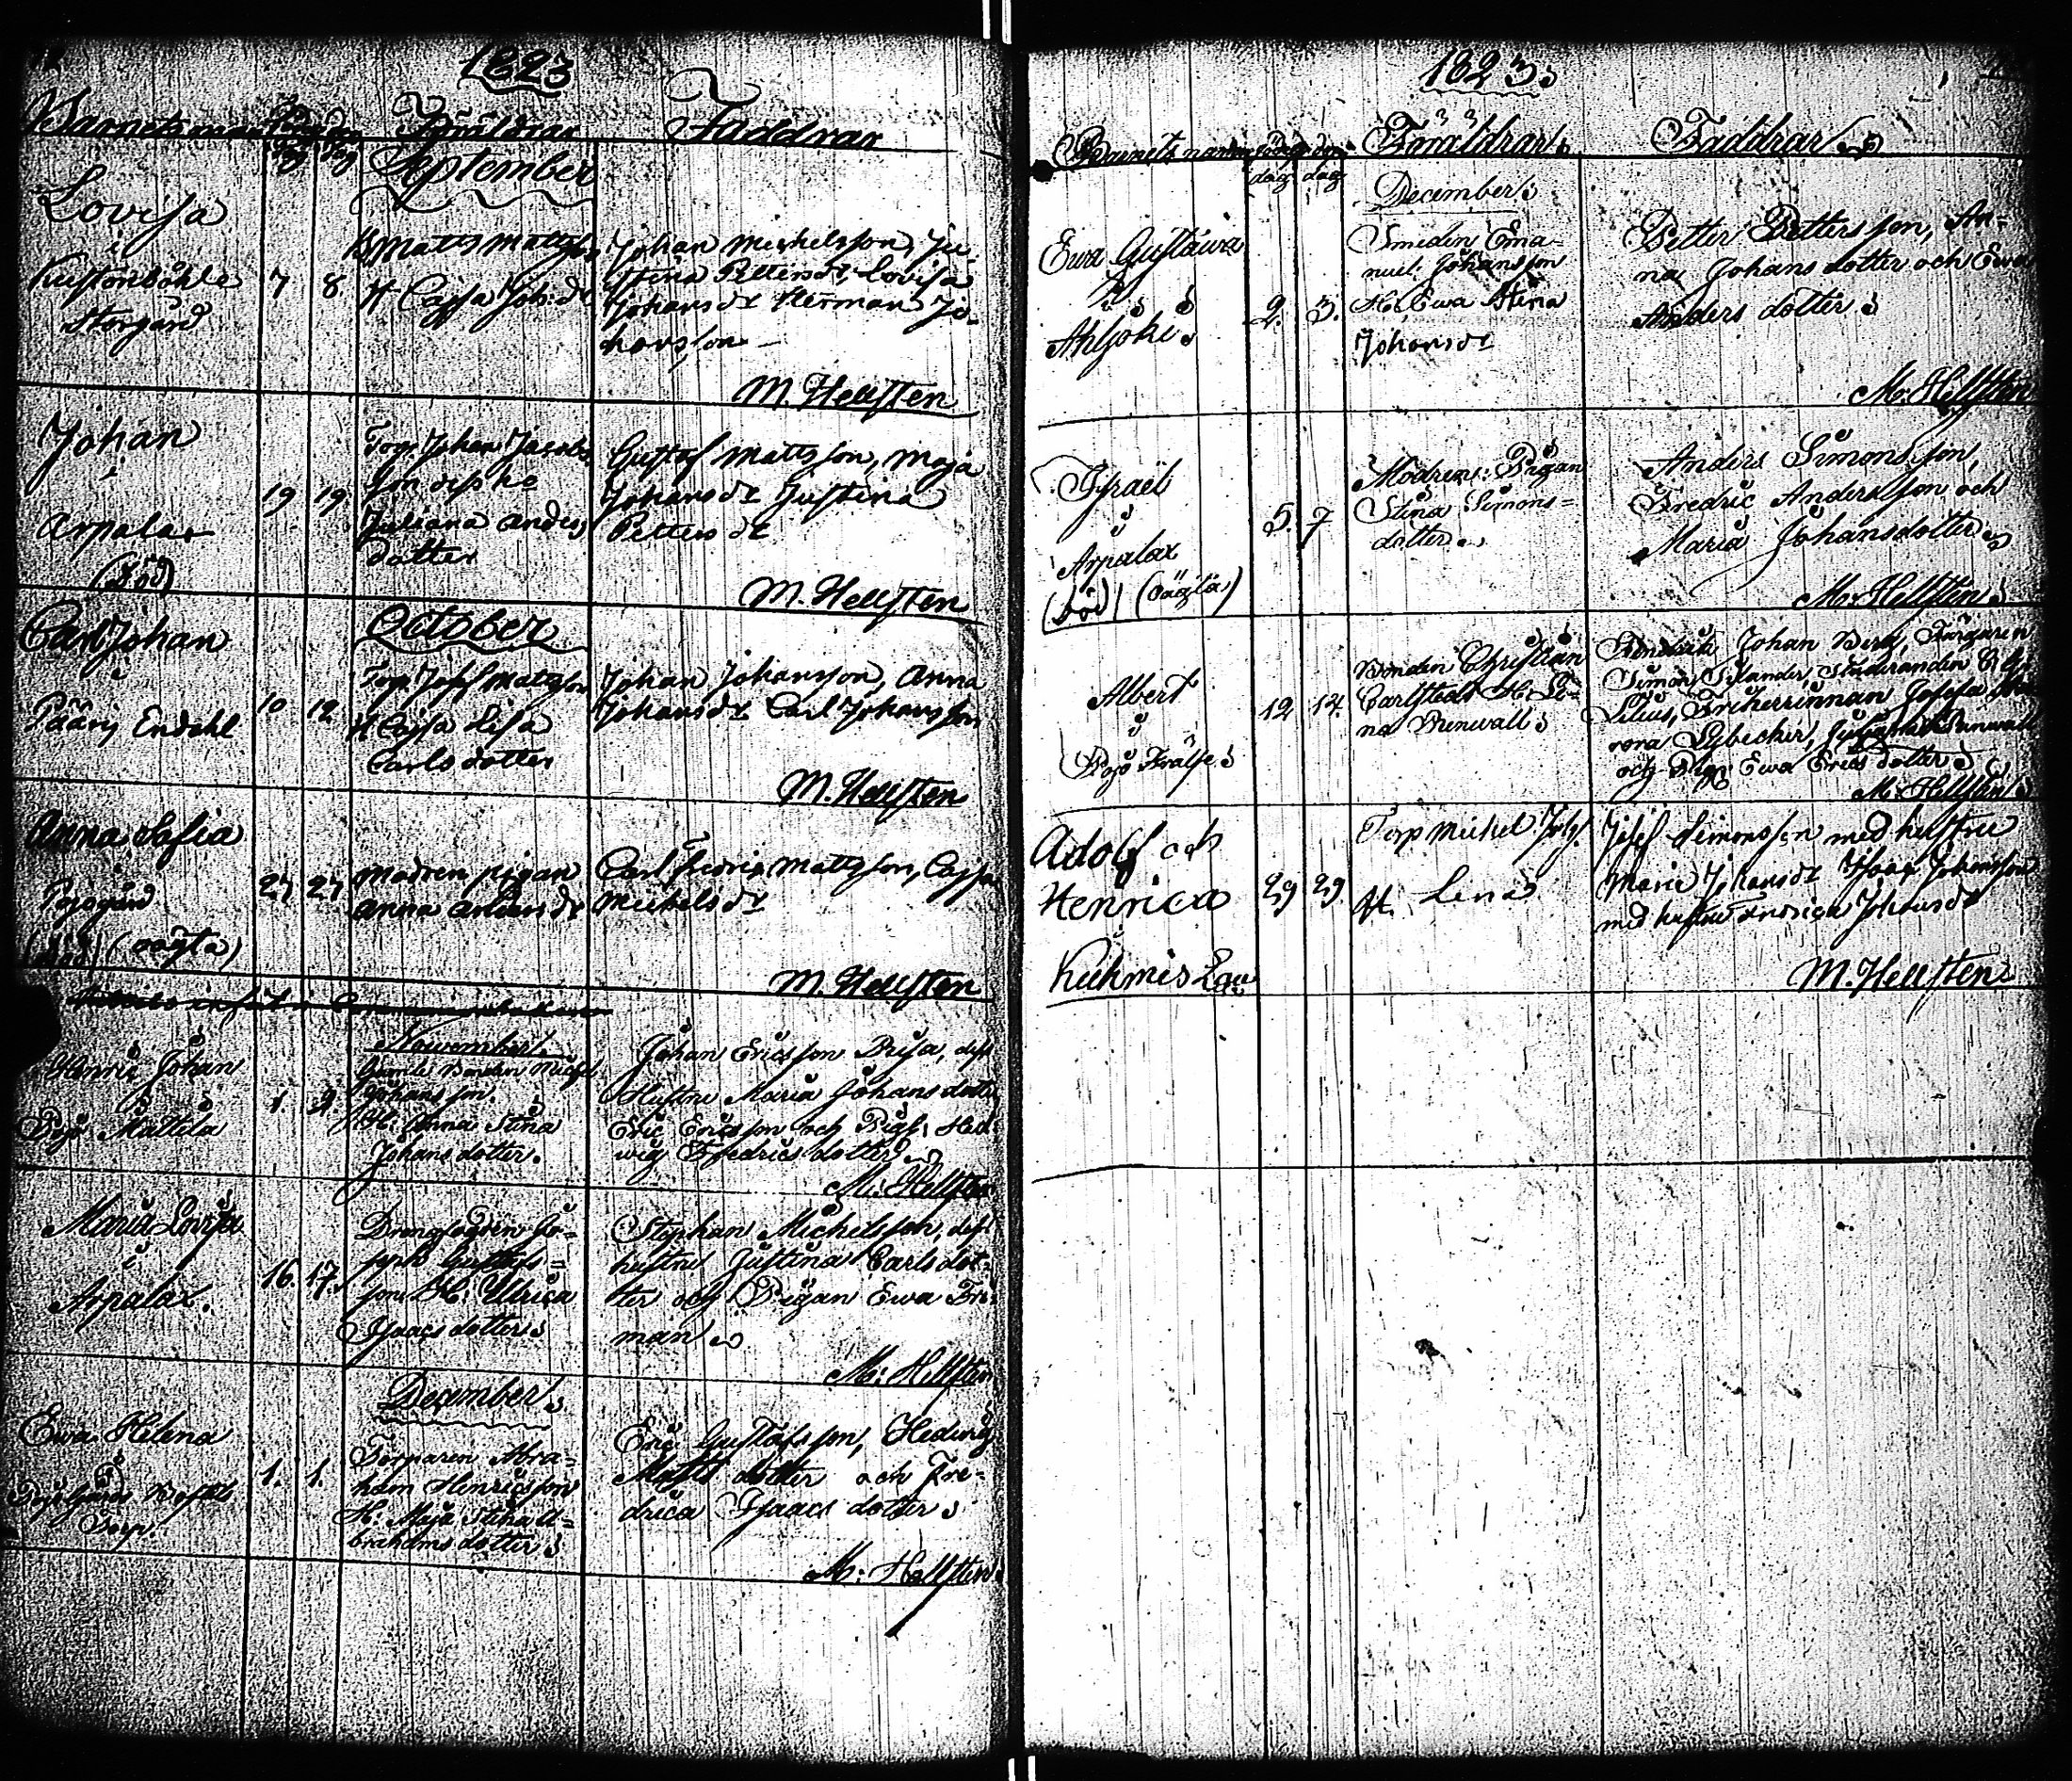 1823
Barnets namn Föräldrar Faddrar
September
Lovisa
i
Storgård
7 8
B Matts Mattsson
H Cajsa Joh:dr
Johan Michelsson, Ju-
stina Pettersdr Lovisa
Johansdr Herman Jo-
hansson
M. Hellsten
Johan
i
Arpalax
(död)
19 19
Torp. Johan Jacobs
son dess h
Juliana Anders
dotter
Gustaf Mattsson, Maja
Johansdr Justina
Pettersdr
M. Hellsten
October
Carl Johan
i
Pääry
10 12
Torp Josef Mattsson
H Cajsa Lisa
Carlsdotter
Johan Johansson, Anna
Johansdr Carl Johansson
M. Hellsten
Anna Sofia
i
Pojogård
(död) (oägta)
27 27
Modren pigan
Anna Andersdr
Carl Fredric Mattsson, Cajsa
Michelsdr
M. Hellsten
November
Henric Johan
i
Pojo Mattila
1. 2.
Bonden Michel
Johansson.
H: Anna Stina
Johansdotter.
Johan Ericsson Brusa, dess
Hustru Maria Johansdotter
Eric Ericsson och Pig: Hed-
wig Fredricsdotter
M: Hellsten
Maria Lovisa
i
Arpalax.
16. 17.
Jo-
seph Gustafs=
son H: Ulrica
Isaacsdotter
Stephan Michelsson, dess
hustru Justina Carlsdot-
ter och Pigan Ewa Fri-
man
M: Hellsten
December
Ewa Helena
i
Torp.
1. 1.
Torparen Abra-
ham Henricsson
H. Maja Stina A=
brahamsdotter
Eric Gustafsson, Hedwig
Matts dotter och Fre-
drica Isaacs dotter
M: Hellsten
1823
Barnets namn Föräldrar Faddrar
dag dag
December
Ewa Gustawa
i
Ahljoki
2. 3.
Smeden Ema-
nuel Johansson
H: Ewa Stina
Johansdr
Petter Pettersson, An-
na Johansdotter och Ewa
Anders dotter
M: Hellsten
Israël
i
Arpalax
(död) (oägta)
5. 7
Modren: Pigan
Stina Simons=
dotter
Anders Simonsson,
Fredric Andersson och
Maria Johansdotter
M: Hellsten
Albert
i
Pojo Frälse
12 14.
Bonden Christian
Carlstedt H: Le-
na Brunwall
Johan Berg, Färgaren
Simon Silander Studeranden
Lilius, Friherrinnan Josefa Au-
rora Lybecker, Brunwall
och Pig: Ewa Erics dotter
M: Hellsten
Adolf och
Henrica
i
Kuhmis
29 29.
Torp Michel
H. Lena
Josef Simonsson med hustru
Maria Johansdr Isaac Johansson
med hustru Fredrica Johansdr
M. Hellsten